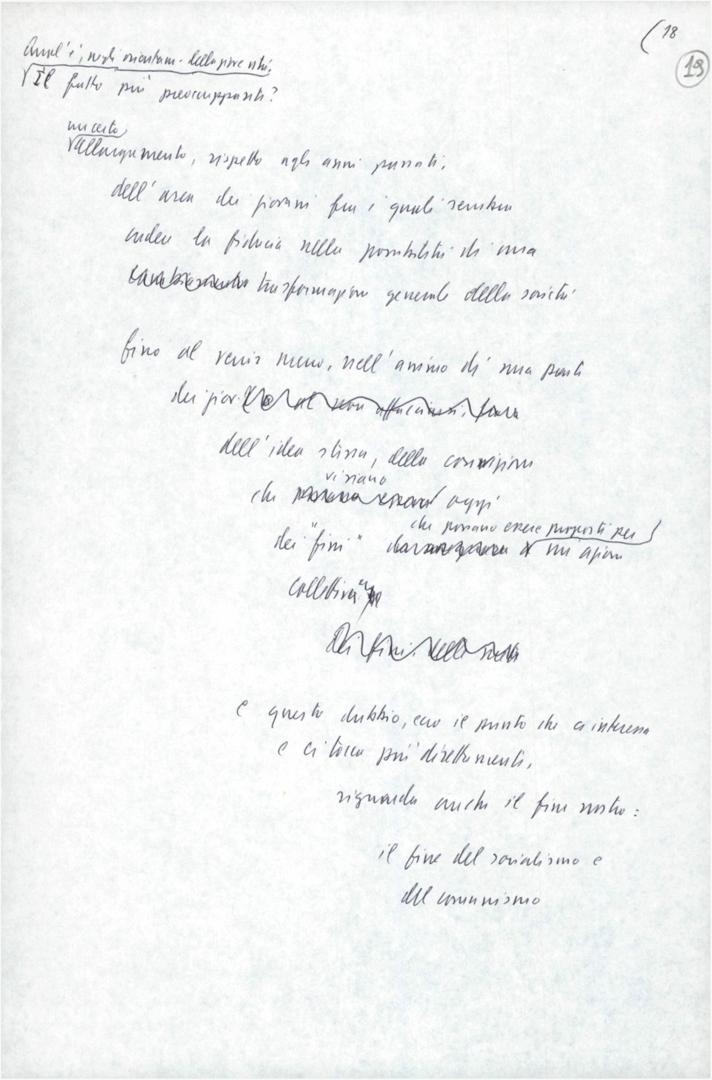 18
19
Qual'è, negli orientam. della gioventù,
Il fatto più preoccupante?
un certo
allargamento, rispetto agli anni passati,
dell'area dei giovani fra i quali sembra
cadere la fiducia nella possibilità di una
cambiamento trasformazione generale della società
fino al venir meno, nell'animo di una parte
dei giovani
dell'idea stessa, della convinzione
vi siano
che oggi
che possano essere proposti per
dei "fini" un azione
collettiva
Dei fini della
e questo dubbio, ecco il punto che ci interessa
e ci tocca più direttamente,
riguarda anche il fine nostro:
il fine del socialismo e
del comunismo